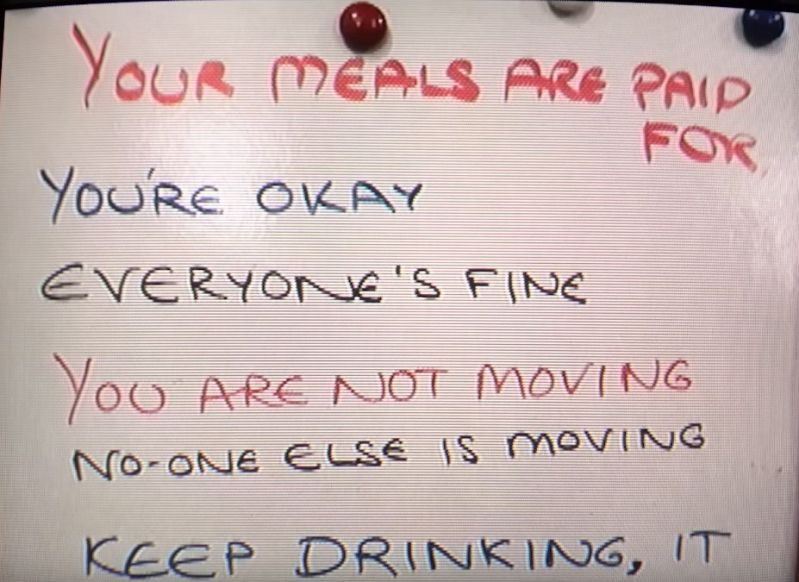 YOUR MEALS ARE PAID
FOR
YOU'RE OKAY
EVERYONE'S FINE
YOU ARE NOT MOVING
NO-ONE ELSE IS MOVING
KEEP DRINKING, IT